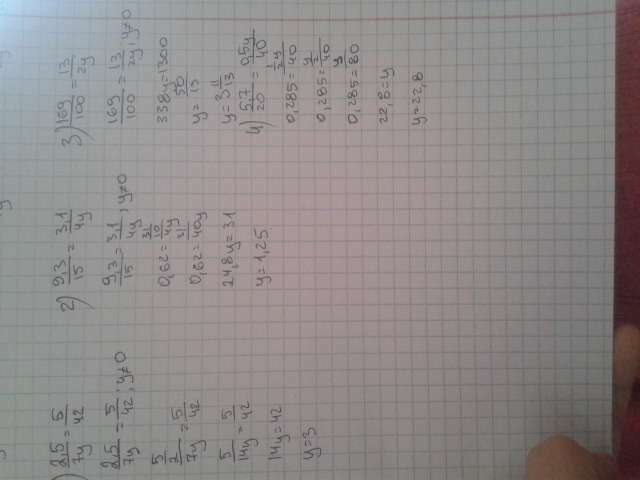 ) 2,5/7y = 5/42
2,5/7y = 5/42; y≠0
5/2/7y = 5/42
5/14y = 5/42
14y=42
y=3
2) 9,3/15 = 3,1/4y
9,3/15 = 3,1/4y; y≠0
0,62 = 31/10/4y
0,62 = 31/40y
24,8y=31
y=1,25
3) 169/100 = 13/2y
169/100 = 13/2y; y≠0
338y=1300
y= 50/13
y=3 11/13
4) 5,7/20 = 0,5y/40
0,285 = 1/2y/40
0,285 = y/2/40
0,285 = y/80
22,8=y
y=22,8